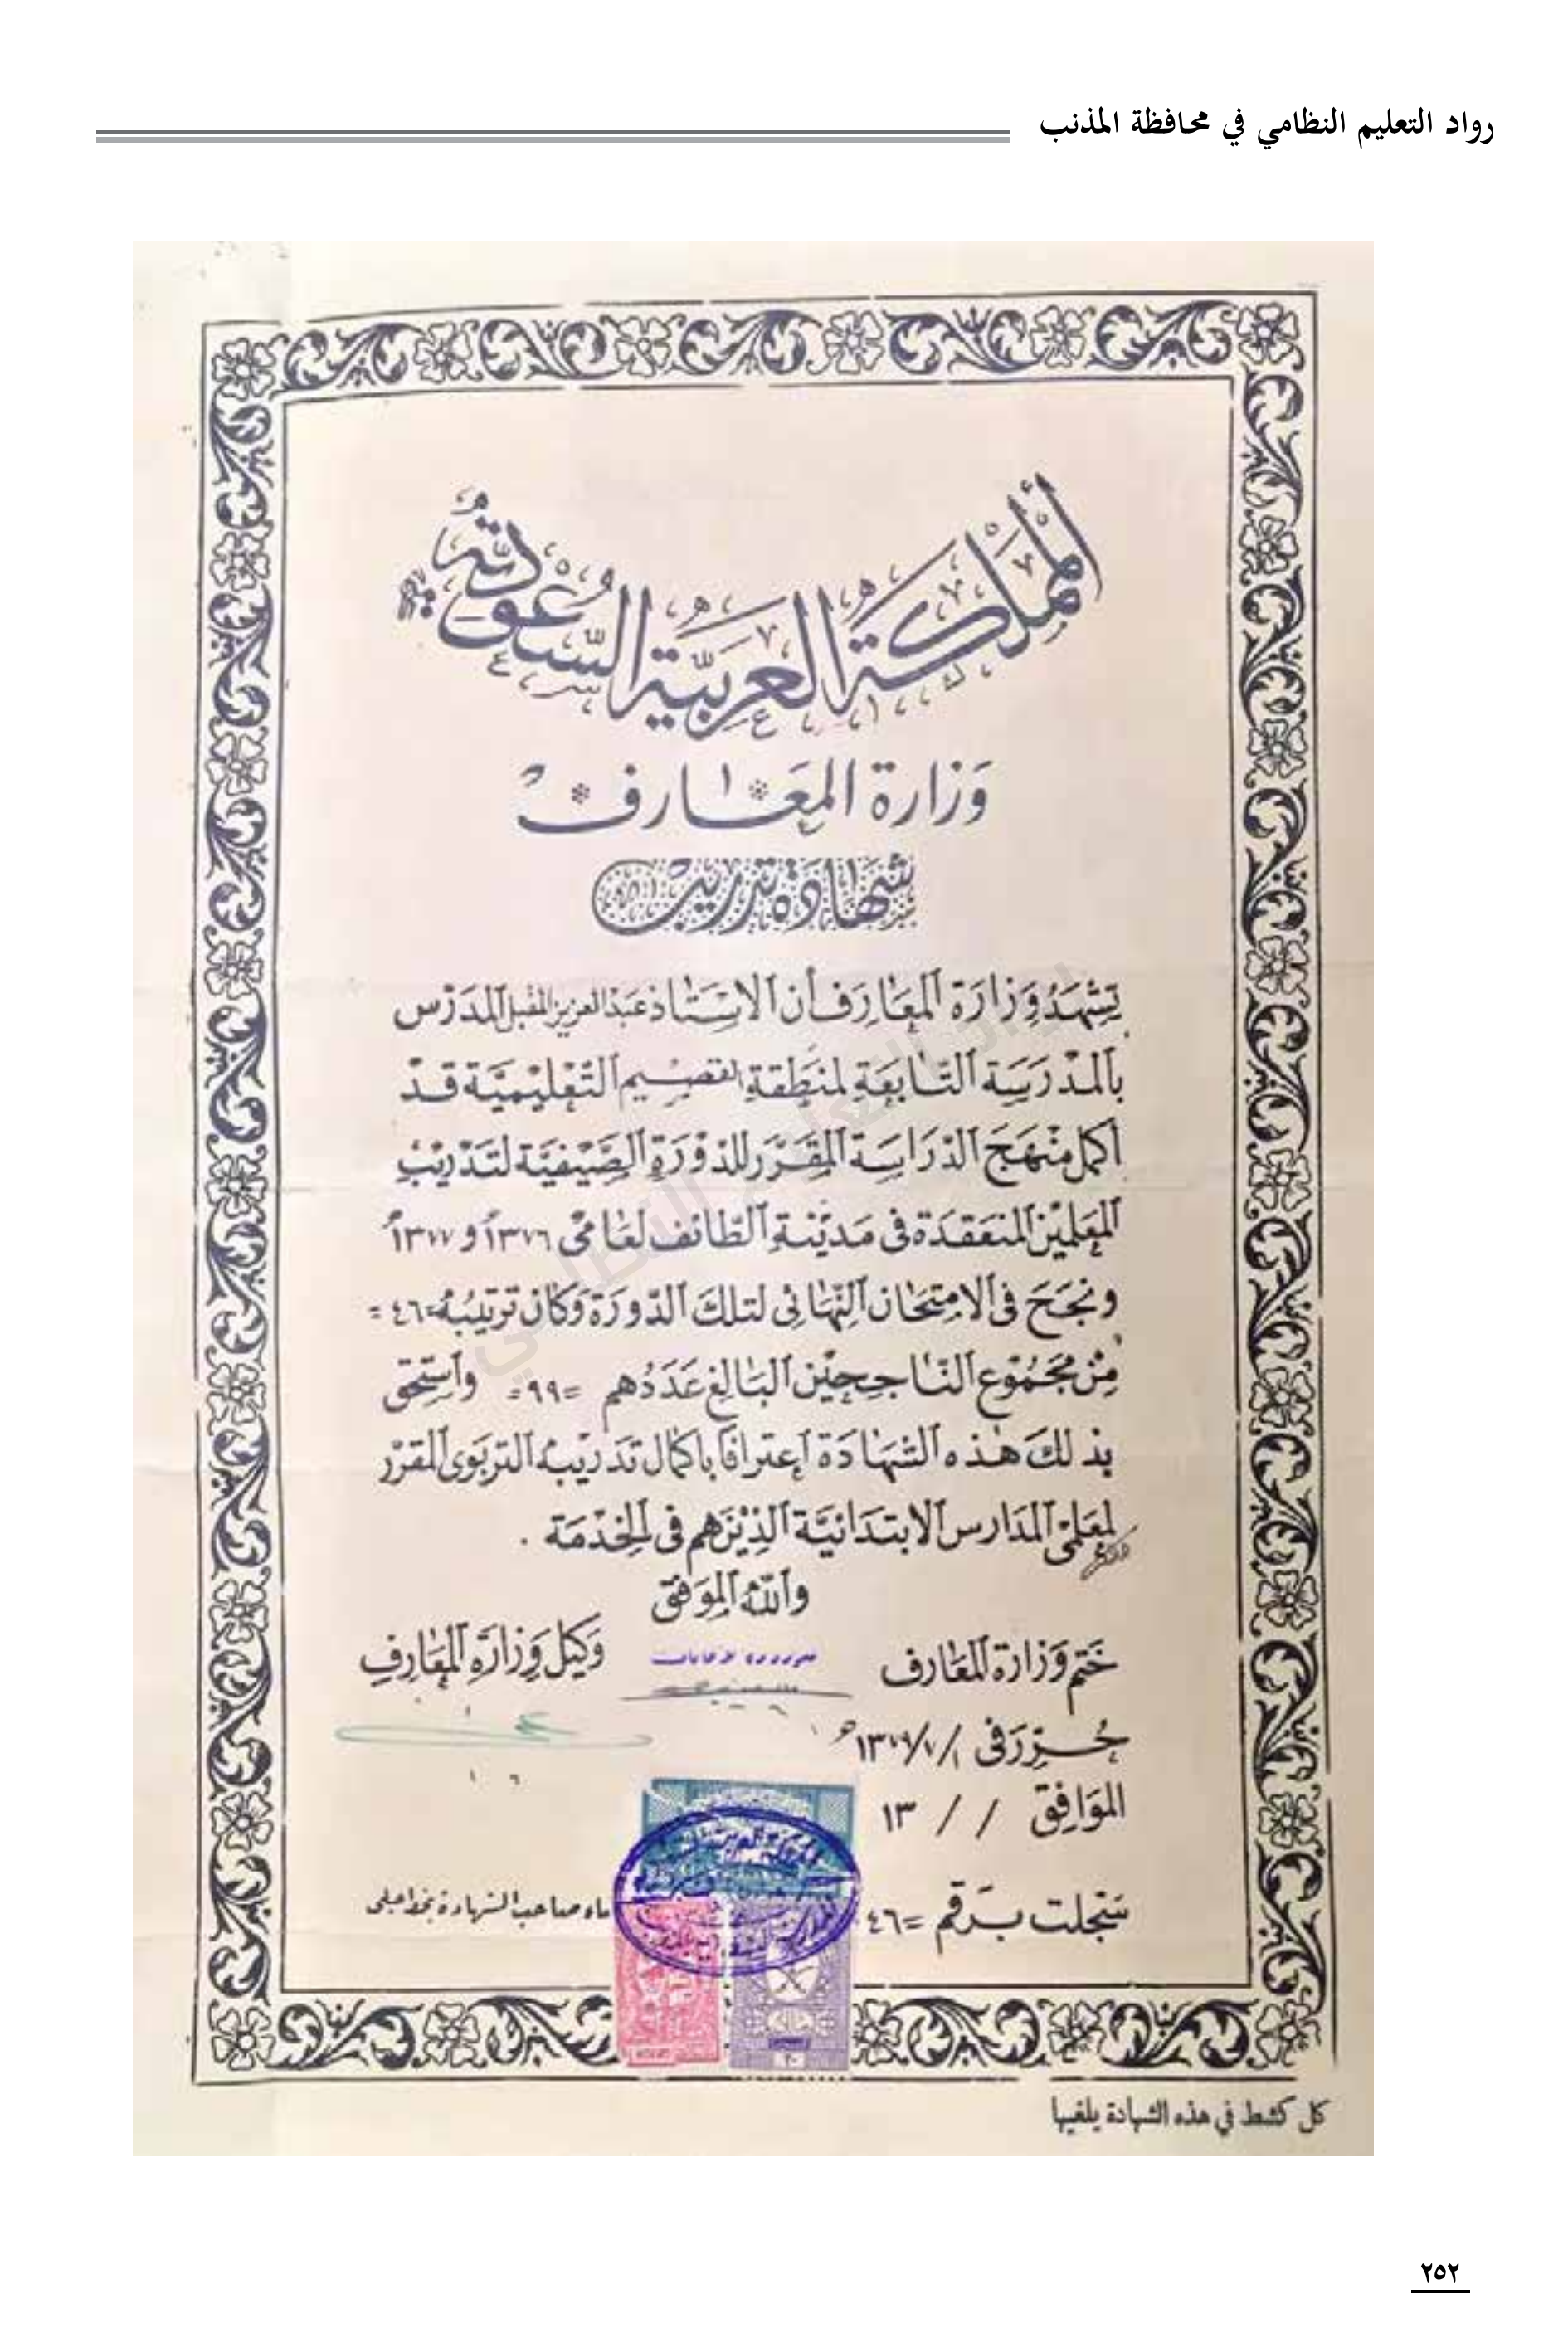 رواد التعليم النظامي في محافظة المذنب
المملكة العربية السعودية
وزارة المعارف
شهادة تدريب
تشهد وزارة المعارف أن الاستاذ عبد العزيز المقبل المدرس
بالمدرسة التابعة لمنطقة القصيم التعليمية قد
أكمل منهج الدراسة المقرر للدورة الصيفية لتدريب
المعلمين المنعقدة في مدينة الطائف لعامي ١٣٧٦ و ١٣٧٧
ونجح في الامتحان النهائي لتلك الدورة وكان ترتيبه =٤٦=
من مجموع الناجحين البالغ عددهم =٩٩= واستحق
بذلك هذه الشهادة اعترافا باكمال تدريبه التربوي المقرر
لمعلمي المدارس الابتدائية الذين هم في الخدمة .
والله الموفق
ختم وزارة المعارف
وكيل وزارة المعارف
حرر في ١/٧/١٣٧٩هـ
الموافق / / ١٣
سجلت برقم =٤٦
صاحب الشهادة بخط
كل كشط في هذه الشهادة يلغيها
٢٥٢